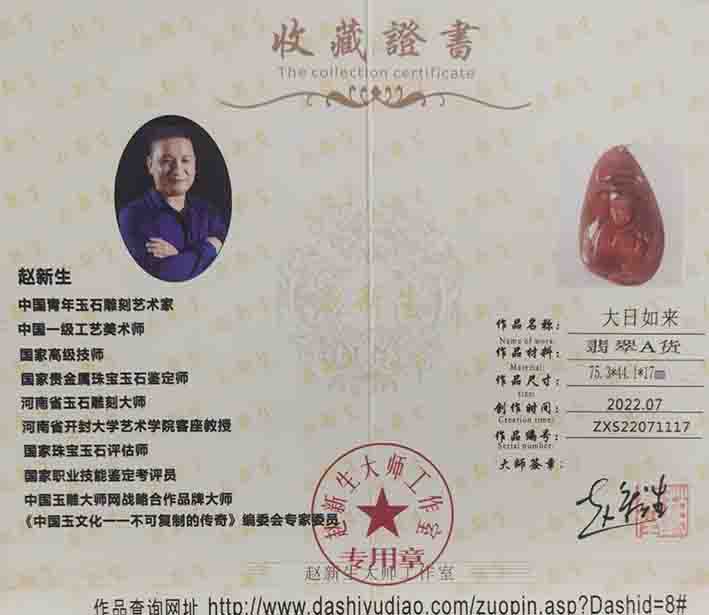 收藏證書
The collection certificate
赵新生
中国青年玉石雕刻艺术家
中国一级工艺美术师
国家高级技师
国家贵金属珠宝玉石鉴定师
河南省玉石雕刻大师
河南省开封大学艺术学院客座教授
国家珠宝玉石评估师
国家职业技能鉴定考评员
中国玉雕大师网战略合作品牌大师
《中国玉文化一一不可复制的传奇》编委会专家委员
作品名称：大日如来
Name of work:
作品材料：翡翠A货
Material:
作品尺寸：75.3*44.1*17mm
size:
创作时间：2022.07
Creation time:
作品编号：ZXS22071117
Serial number:
大师签章：
赵新生
赵新生大师工作室
专用章
赵新生大师工作室
作品查询网址 http://www.dashiyudiao.com/zuopin.asp?Dashid=8#